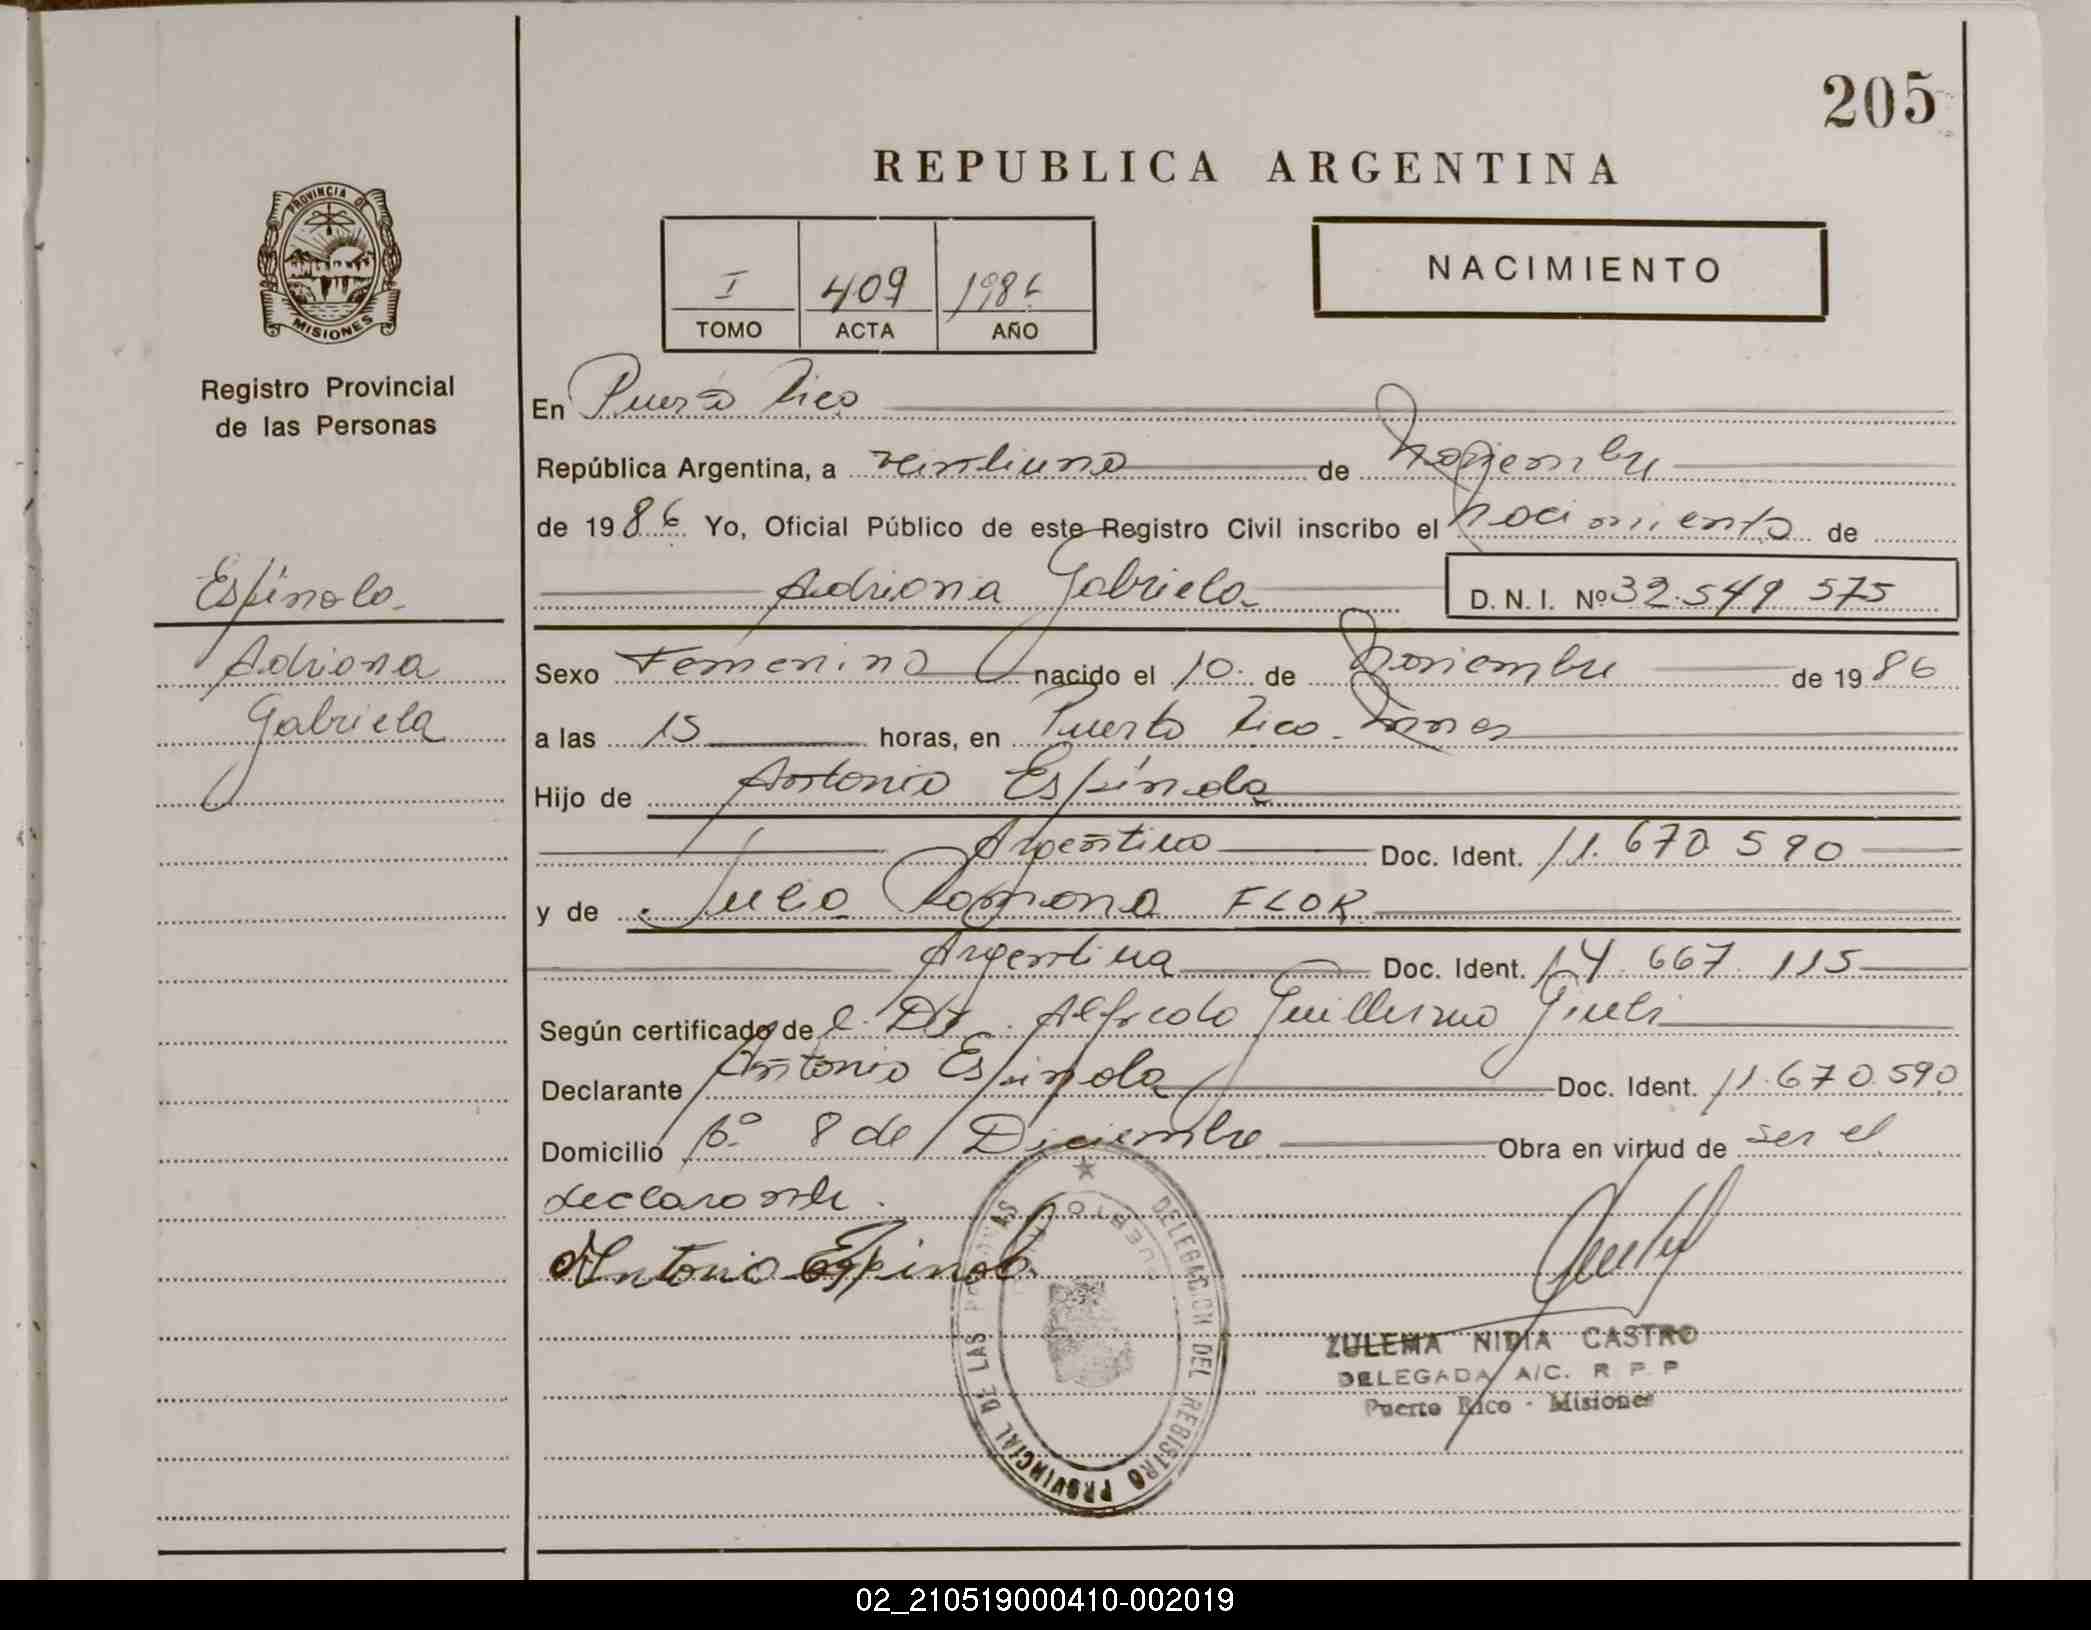 205
REPUBLICA ARGENTINA
PROVINCIA DE
MISIONES
Registro Provincial
de las Personas
I 409 1986
TOMO ACTA AÑO
NACIMIENTO
En Puerto Rico
República Argentina, a veintiuno de noviembre
de 1986 Yo, Oficial Público de este Registro Civil inscribo el nacimiento de
Adriana Gabriela D.N.I. Nº 32.549 575
Espínola
Adriana
Gabriela
Sexo Femenino nacido el 10 de noviembre de 1986
a las 15 horas, en Puerto Rico - Mnes
Hijo de Antonio Espínola
Argentino Doc. Ident. 11.670 590
y de Ramona FLOR
Argentina Doc. Ident. 14.667.115
Según certificado de Dr. Alfredo Guillermo
Declarante Antonio Espínola Doc. Ident. 11.670.590
Domicilio Bº 8 de Diciembre Obra en virtud de ser el
declarante.
Antonio Espinola
DELEGACION DEL REGISTRO PROVINCIAL DE LAS PERSONAS
PUERTO
ZULEMA NIDIA CASTRO
DELEGADA A/C. R P P
Puerto Rico - Misiones
02_210519000410-002019